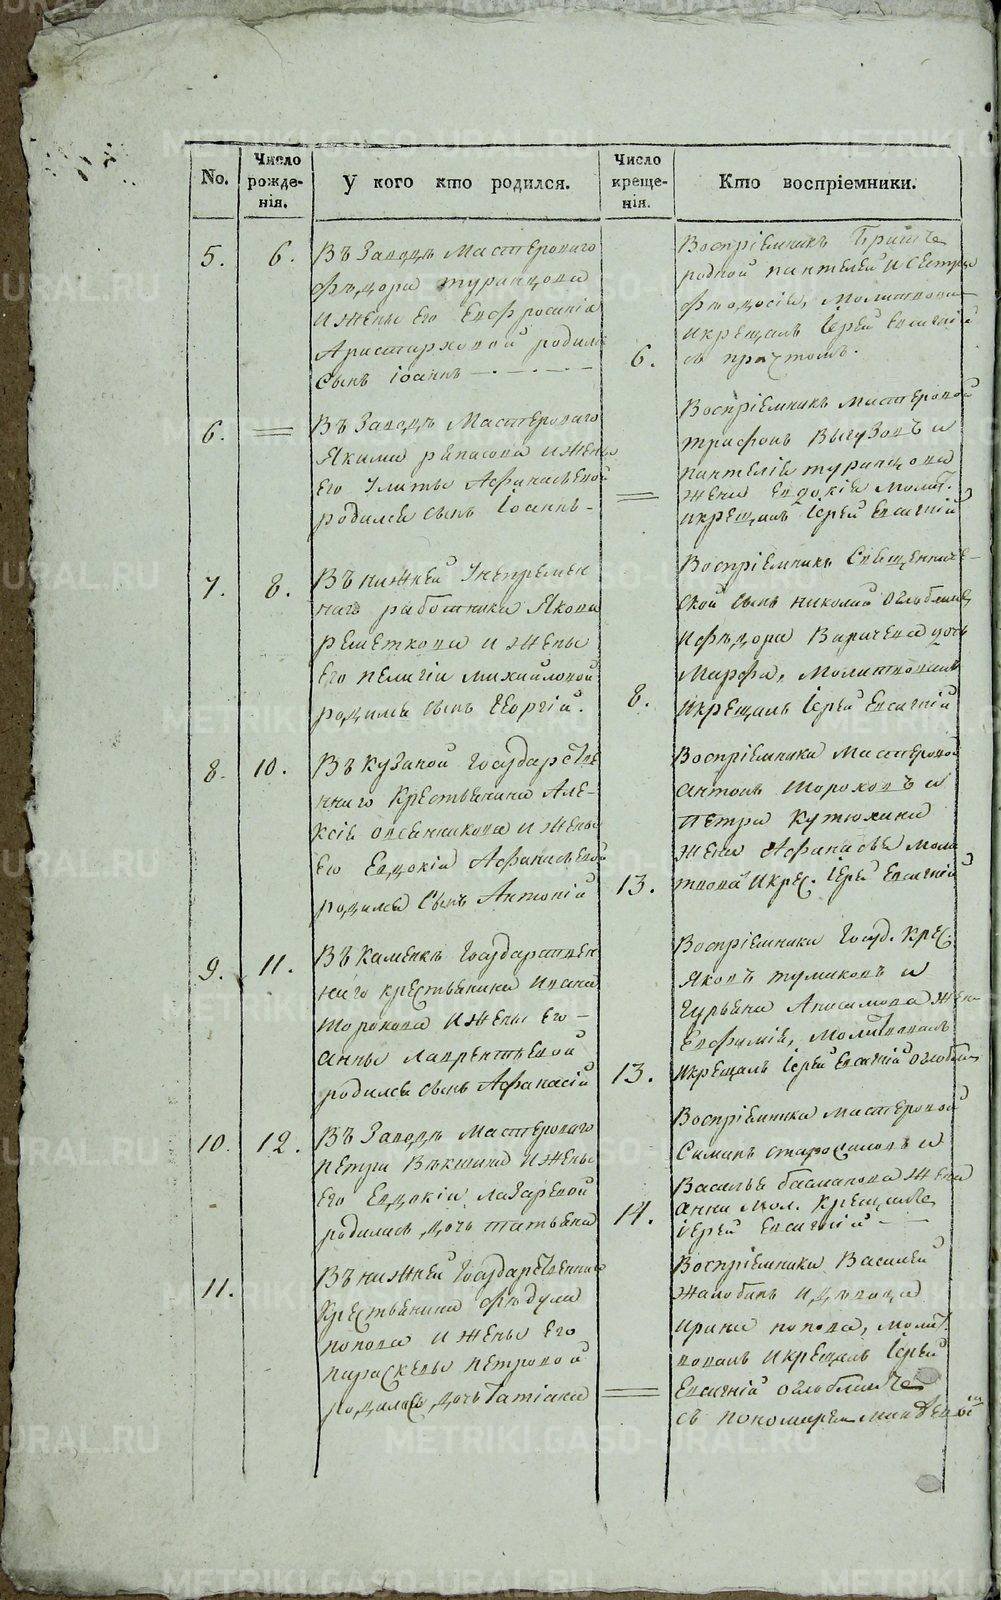 No.
Число рожде-нія.
У кого кто родился.
Число креще-нія.
Кто воспріемники.
5.
6.
Въ Заводѣ Мастероваго
Ѳедора туранцова
и жены Его Евфросиніи
Аристарховой родился
Сынъ Іоаннъ
6.
Воспріемникъ
родной пантелей и сестра
Ѳеодосія, Молитвовал
и крещалъ Іерей Евсигній
съ причтомъ.
6.
Въ Заводѣ Мастероваго
Якима рѣпасова и жены
Его Улиты Афанасьевой
родился сынъ Іоаннъ -
Воспріемникъ мастеровой
трифонъ Выгузовъ и
пантелея туранцова
жена Евдокія молит.
и крещалъ Іерей Евсигній
7.
8.
Въ нижней Непремен
наго работника Якова
решеткова и жены
Его пелагіи михайловой
родился сынъ Георгій.
8.
Воспріемникъ Священниче-
ской сынъ николай оглоблинъ
и Ѳедора Варичева дочь
Марфа, Молитвовалъ
и крещалъ Іерей Евсигній
8.
10.
Въ кузиной Государстве
ннаго Крестьянина Але-
ксія овсянникова и жены
Его Евдокіи Афанасьевой
родился Сынъ Антоній
13.
Воспріемники Мастеровой
антонъ Шороховъ и
Петра Кутюхина
жена Афанасья моли
твова и крес. Іерей Евсигній
9.
11.
Въ каменкѣ Государствен
наго крестьянина Ивана
Шорохова и жены Его -
анны лаврентьевой
родился сынъ Афанасій
13.
Воспріемники Госуд. крес.
Яковъ тумаковъ и
гурьяна Анисимова жена
Евфимія, молитвовалъ
и крещалъ Іерей Евсигній оглоблин
10.
12.
Въ Заводѣ мастероваго
петра Вѣкшина и жены
Его Евдокіи лазаревой
родилась дочь татьяна
14.
Воспріемники мастеровой
Симанъ старосиловъ и
Василья басманова жена
анна мол. крещалъ
іерей Евсигній
11.
Въ нижней Государственнаго
Крестьянина Ѳедула
попова и жены Его
параскевы петровой
родилась дочь Татіана
Воспріемники Василей
жалобинъ и дѣвица
ирина попова, молит
вовалъ и крещалъ Іерей
Евсигній оглоблинъ
съ пономарем
METRIKI.GASO-URAL.RU